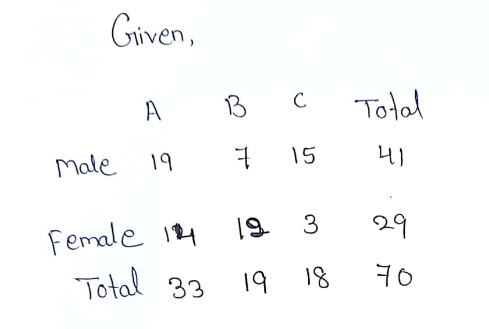 Given,
A B C Total
Male 19 7 15 41
Female 14 12 3 29
Total 33 19 18 70